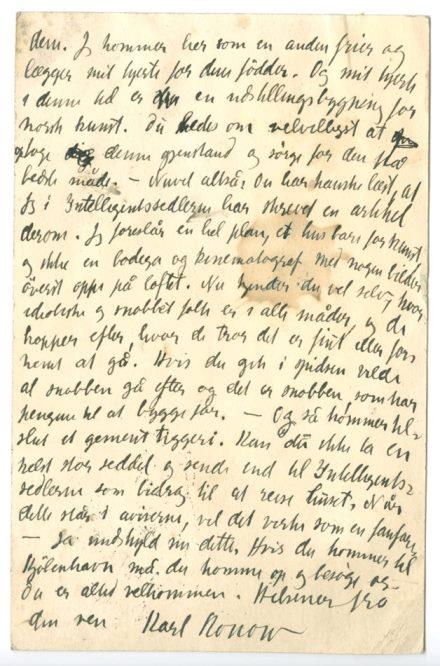 dem. Jeg kommer her som en anden frier og
lægger mit hjerte for dine födder. Og mit hjerte
i denne tid er en udstillingsbygning for
norsk kunst. Du bedes om velvilligst at
optage denne gjenstand og sörge for den paa
bedste måde. — Nuvel altså: Du har kanske læst, at
jeg i Intelligentssedlerne har skrevet en artikel
derom. Jeg foreslår en hel plan, et hus bare for kunst
og ikke en bodega og kinematograf med nogen billeder
överst oppe på loftet. Nu kjender du vel selv, hvor
idiotiske og snobbet folk er i alle måder, og de
hopper efter, hvor de tror det er fint eller for-
nemt at gå. Hvis du gik i spidsen vilde
al snobben gå efter og det er snobben, som har
pengene til at bygge for. — Og så kommer til-
slut et gement tiggeri. Kan du ikke ta en
stor seddel og sende ind til Intelligents-
sedlerne som bidrag til at reise huset. Når
dette står i aviserne, vil det virke som en fanfare
— Ja undskyld nu dette. Hvis du kommer til
Kjöbenhavn må du komme op og besöge os.
Du er altid velkommen. Hilsener fra
din ven Karl Konow